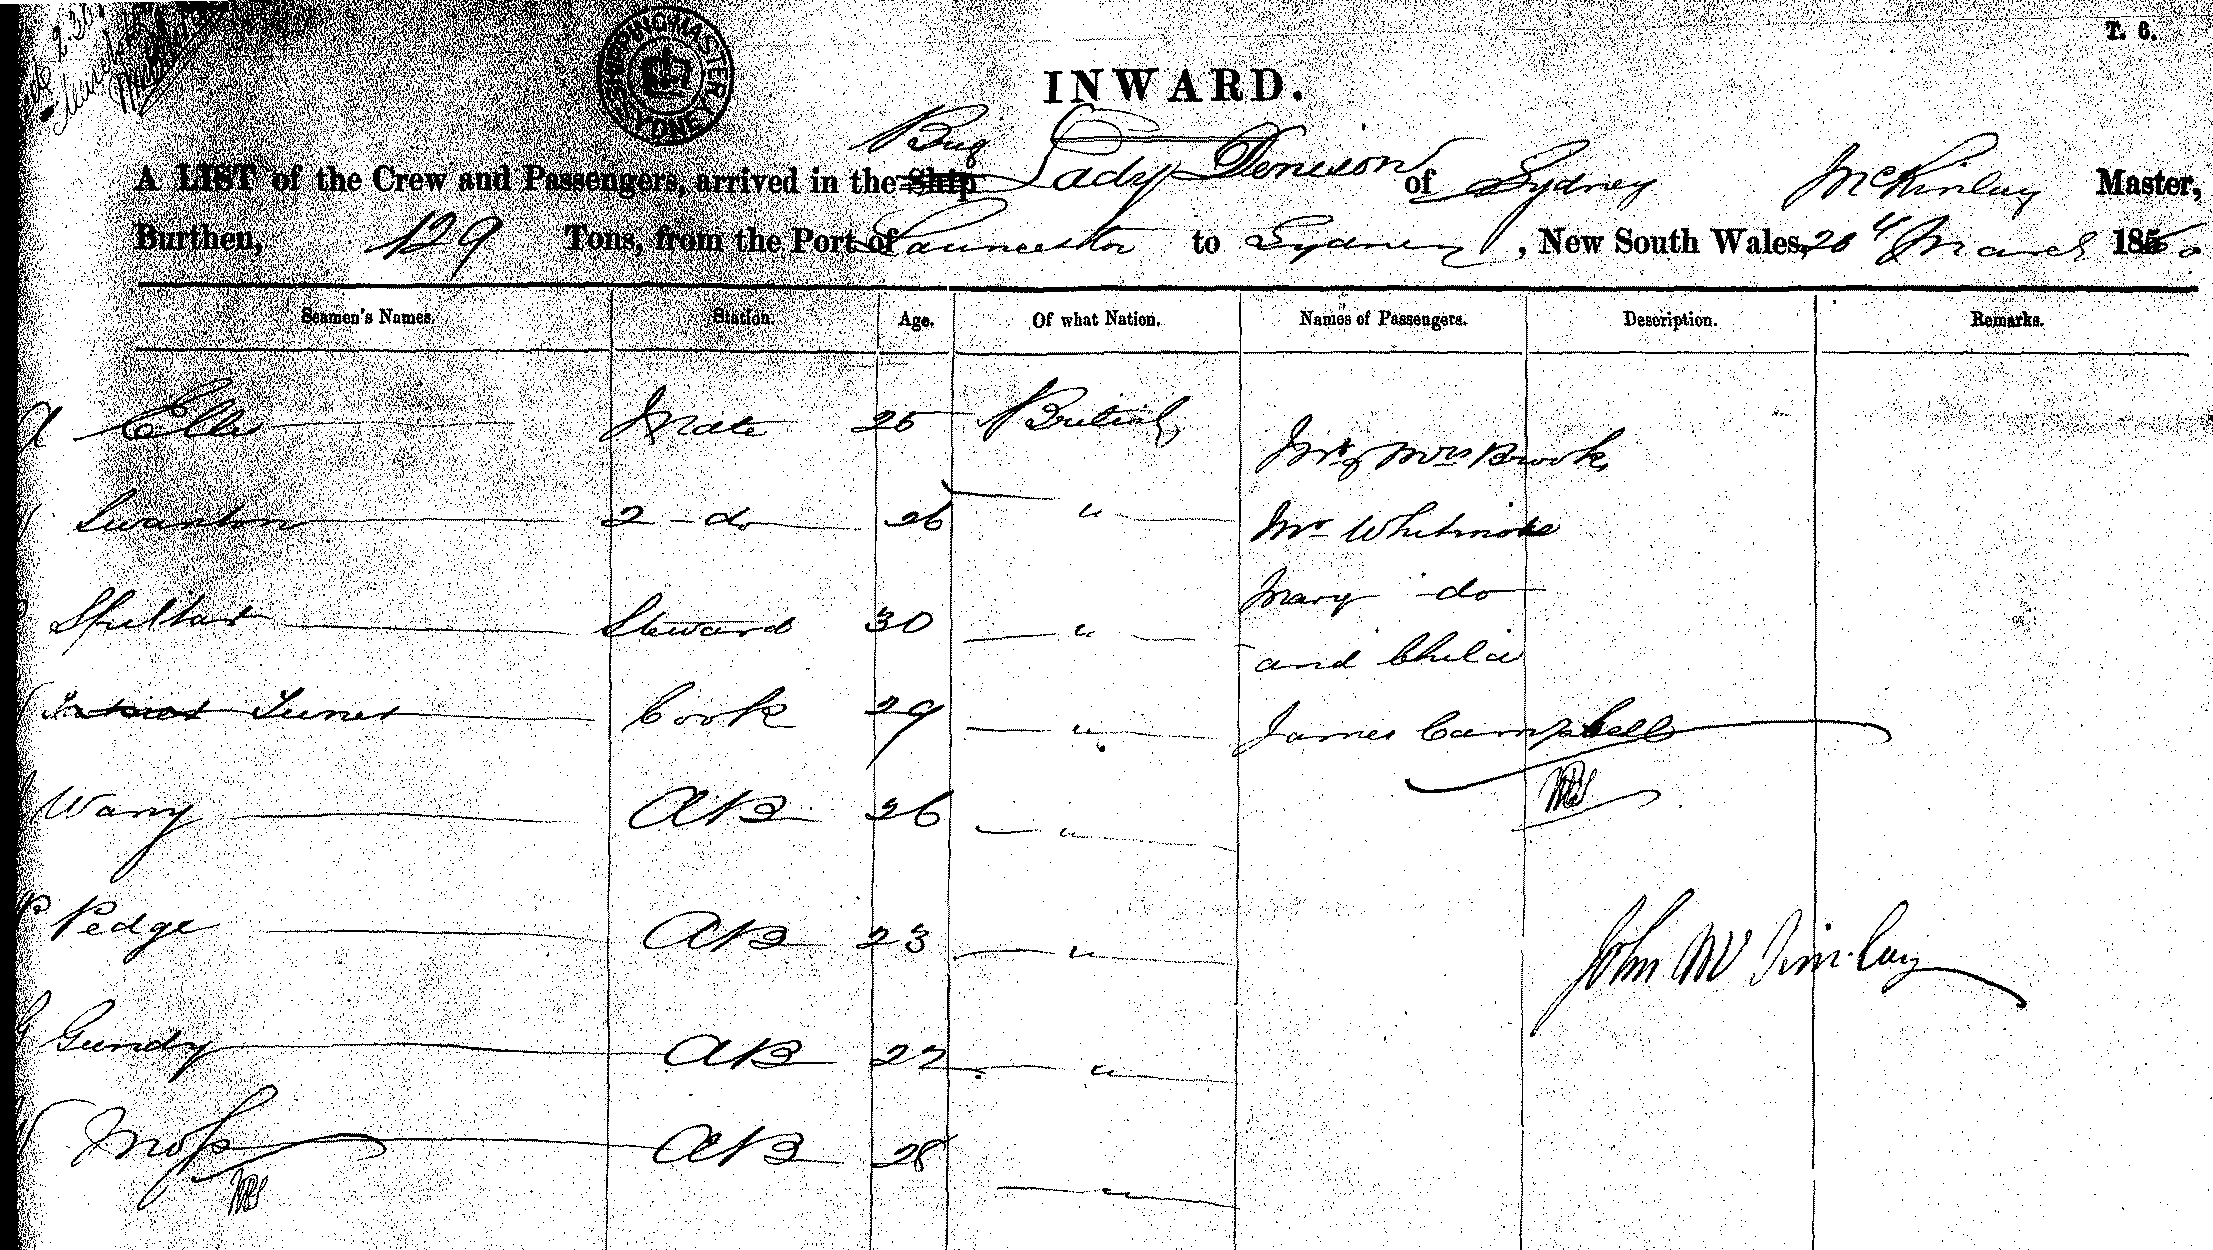 T. 6.
SHIPPING MASTER SYDNEY
INWARD.
Brig
A LIST of the Crew and Passengers, arrived in the Ship Lady Denison of Sydney McKinlay Master,
Burthen, 129 Tons, from the Port of Launceston to Sydney, New South Wales, 20th March 1860
Seamen's Names. Station. Age. Of what Nation. Names of Passengers. Description. Remarks.
Ellis Mate 25 British
Mr & Mrs Brooks
Swanton 2 do 26 "
Mr Whitmore
Mary do
Steward 30 "
and Child
Turner Cook 29 "
James Campbell
Warry AB 26 "
P Pedge AB 23 "
John
G Gundy AB 27 "
W Moss AB 28 "